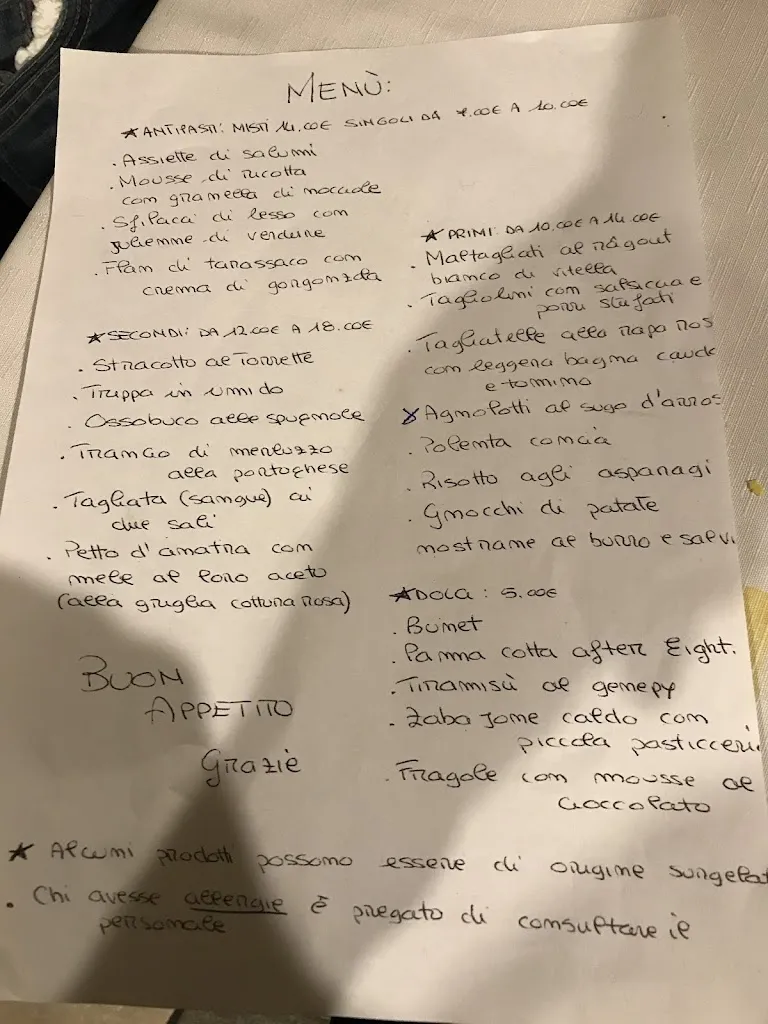 MENÙ:
★ ANTIPASTI: MISTI 14.00€ SINGOLI DA 7.00€ A 10.00€
. Assiette di salumi
. Mousse di ricotta
con gramella di nocciole
. Sfilacci di lesso con
julienne di verdure
. Flan di tarassaco con
crema di gorgonzola
★ SECONDI: DA 12.00€ A 18.00€
. Stracotto al Torrette
. Trippa in umido
. Ossobuco alle spugnole
. Trancio di merluzzo
alla portoghese
. Tagliata (sangue) ai
due sali
. Petto d'anatra con
mele al loro aceto
(alla griglia cottura rosa)
BUON
APPETITO
Grazie
★ PRIMI: DA 10.00€ A 14.00€
. Maltagliati al ràgout
bianco di vitella
. Tagliolini con salsiccia e
porri stufati
. Tagliatelle alla rapa ros
con leggera bagna caud
e tomino
. Agnolotti al sugo d'arros
. Polenta concia
. Risotto agli asparagi
. Gnocchi di patate
nostrane al burro e salvi
★ DOLCI: 5.00€
. Bunet
. Panna cotta after Eight.
. Tiramisù al genepy
. Zabajone caldo con
piccola pasticceri
. Fragole con mousse al
cioccolato
★ Alcuni prodotti possono essere di origine surgelat
. Chi avesse allergie è pregato di consultare il
personale